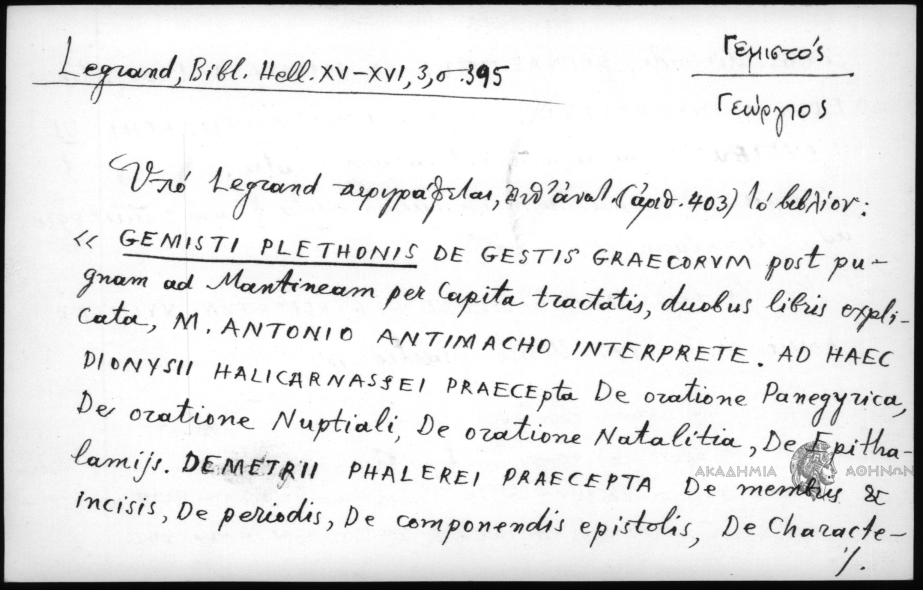 Legrand, Bibl. Hell. XV-XVI, 3, σ. 395
Γεμιστός
Γεώργιος
Ὑπό Legrand περιγράφεται, (ἀριθ. 403) τό βιβλίον:
« GEMISTI PLETHONIS DE GESTIS GRAECORVM post pu-
gnam ad Mantineam per Capita tractatis, duobus libris expli-
cata, M. ANTONIO ANTIMACHO INTERPRETE. AD HAEC
DIONYSII HALICARNASSEI PRAECEpta De oratione Panegyrica,
De oratione Nuptiali, De oratione Natalitia, De Epitha-
lamijs. DEMETRII PHALEREI PRAECEPTA De membris &
incisis, De periodis, De componendis epistolis, De Characte-
./.
ΑΚΑΔΗΜΙΑ ΑΘΗΝΩΝ